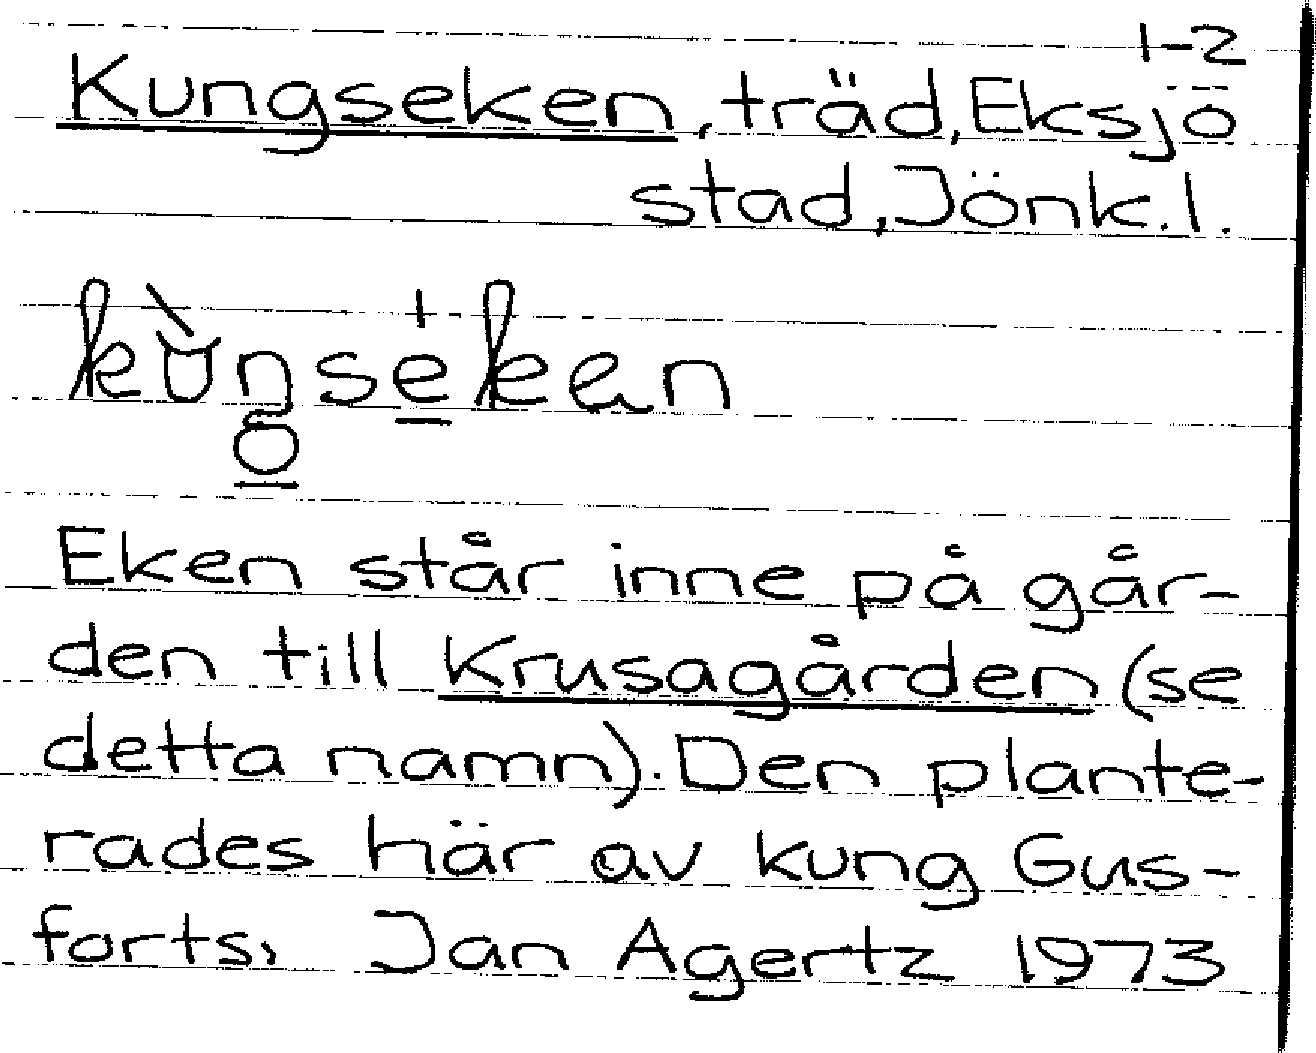 1-2
Kungseken, träd, Eksjö
stad, Jönk. l.
Eken står inne på går-
den till Krusagården (se
detta namn). Den plante-
rades här av kung Gus-
forts, Jan Agertz 1973